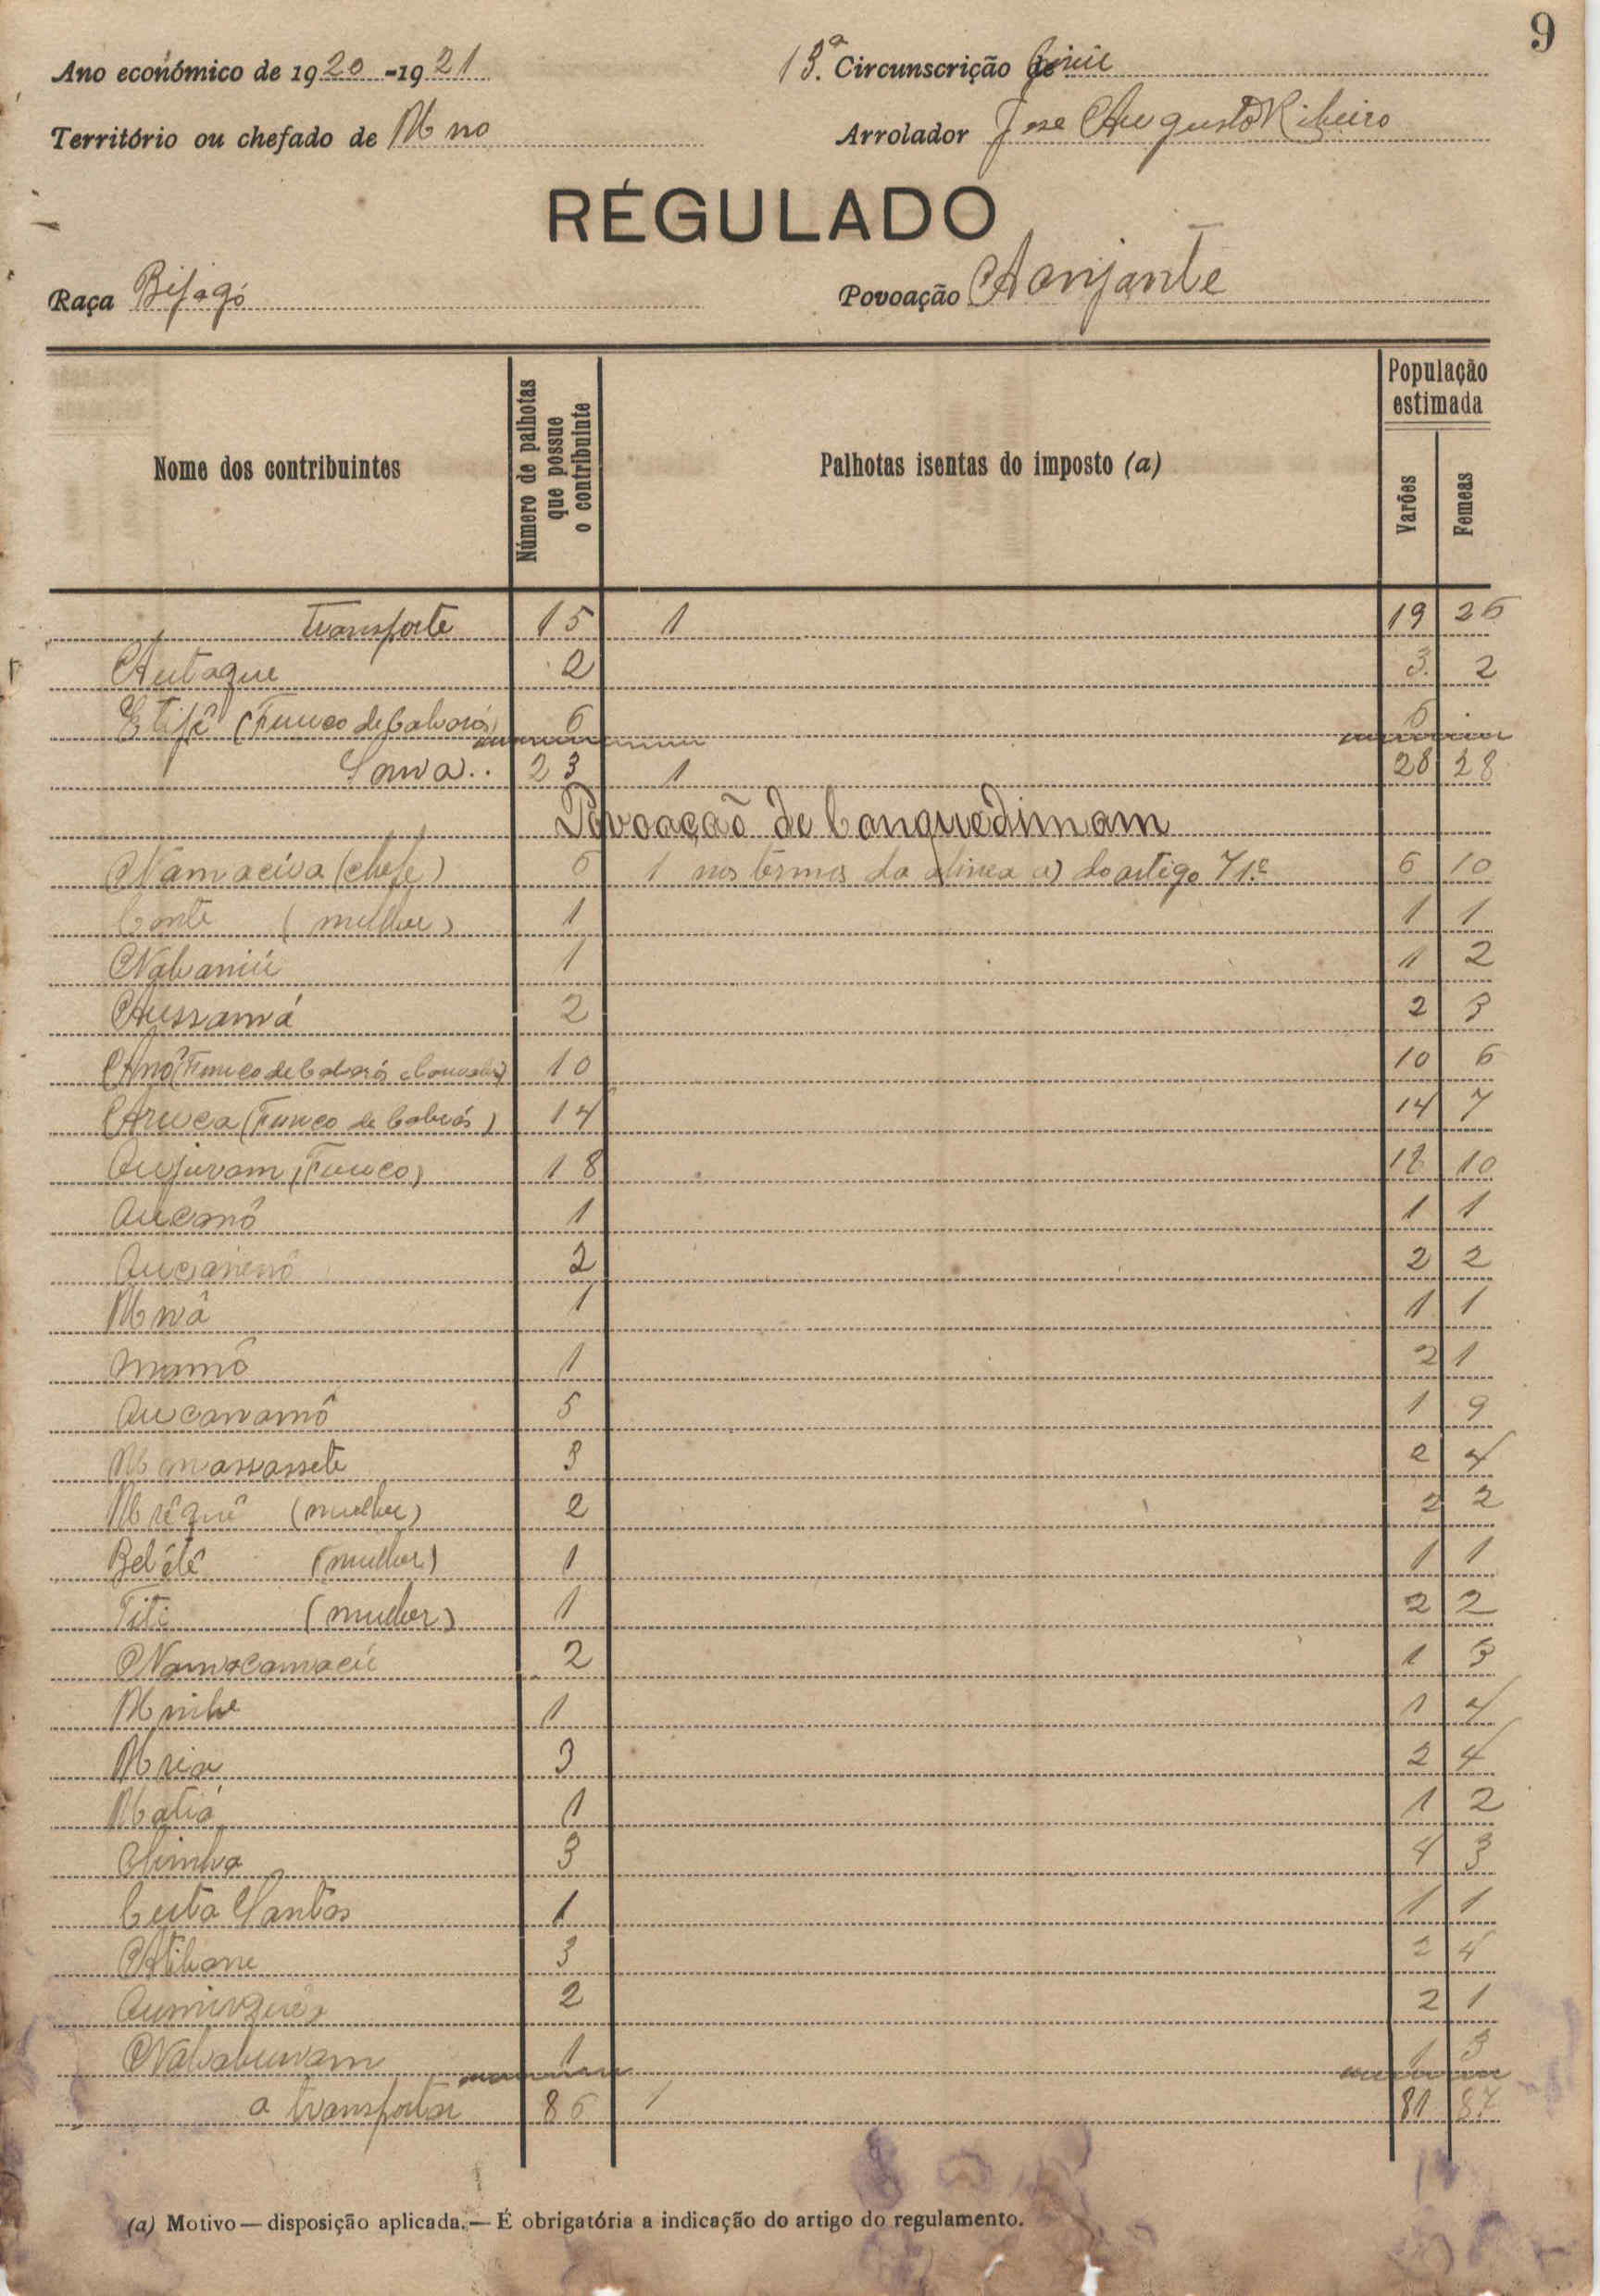 9
Ano económico de 1920-1921
13.ª Circunscrição de
Território ou chefado de M no
Arrolador Jose Augusto Ribeiro
RÉGULADO
Raça Bijagó
Povoação Aonjante
Nome dos contribuintes
Número de palhotas que possue o contribuinte
Palhotas isentas do imposto (a)
População estimada
Varões
Femeas
Transporte 15 1 19 26
Autaque 2 3 2
(Funco de 6 6
Soma.. 23 1 28 28
Povoação de Canquedimam
Namaciva (chefe) 6 1 nos termos da alinea a) do artigo 71.º 6 10
Conte (mulher) 1 1 1
Nabaniú 1 1 2
Aussamá 2 2 3
Anô (Funco de 10 10 6
Aruca (Funco de Cabrós) 14 14 7
Aujuvam (Funco) 18 18 10
Aucanô 1 1 1
2 2 2
M nvâ 1 1 1
Mumô 1 2 1
Aucanamô 5 1 9
Manassassete 3 2 4
(mulher) 2 2 2
Belêlê (mulher) 1 1 1
Titi (mulher) 1 2 2
Namacamacú 2 1 3
1 1 4
3 2 4
Matiá 1 1 2
3 4 3
Santos 1 1 1
3 2 4
2 2 1
Nababuvam 1 1 3
a transportar 86 1 81 87
(a) Motivo — disposição aplicada. — É obrigatória a indicação do artigo do regulamento.